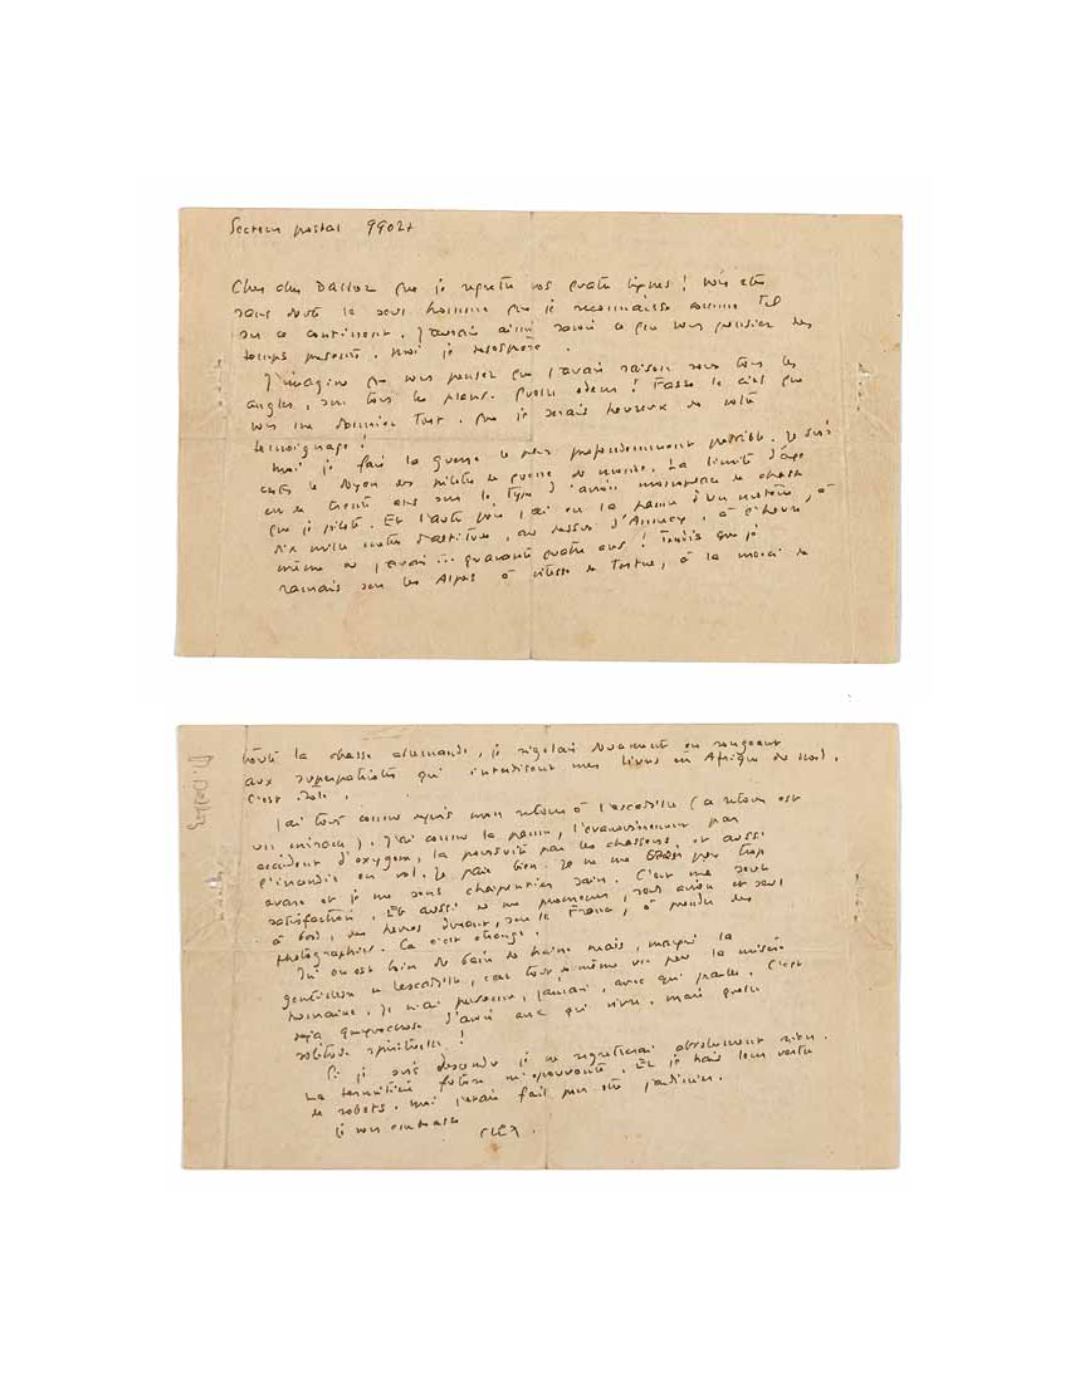 Secteur postal 99027
Cher cher Dalloz que je regrette vos quatre lignes ! Vous êtes
sans doute le seul homme que je reconnaisse comme tel
sur ce continent. J'aurais aimé savoir ce que vous pensiez des
temps présents. Moi je désespère.
J'imagine que vous pensez que j'avais raison sous tous les
angles, sur tous les plans. Quelle odeur ! Fasse le ciel que
vous me donniez tort. Que je serais heureux de votre
témoignage !
Moi je fais la guerre le plus profondément possible. Je suis
certes le doyen des pilotes de guerre du monde. La limite d'âge
est de trente ans sur le type d'avion monoplace de chasse
que je pilote. Et l'autre jour j'ai eu la panne d'un moteur, à
dix mille mètres d'altitude, au dessus d'Annecy, à l'heure
même où j'avais ... quarante quatre ans ! Tandis que je
ramais sur les Alpes à vitesse de tortue, à la merci de
toute la chasse allemande, je rigolais doucement en songeant
aux superpatriotes qui interdisent mes livres en Afrique du nord.
C'est drôle.
J'ai tout connu depuis mon retour à l'escadrille (ce retour est
un miracle). J'ai connu la panne, l'évanouissement par
accident d'oxygène, la poursuite par les chasseurs, et aussi
l'incendie en vol. Je paie bien. Je ne me crois pas trop
avare et je me sens charpentier sain. C'est ma seule
satisfaction. Et aussi de me promener, seul avion et seul
à bord, des heures durant, sur la France, à prendre des
photographies. Ça c'est étrange.
Ici on est loin du bain de haine mais, malgré la
gentillesse de l'escadrille, c'est tout de même un peu la misère
humaine. Je n'ai personne, jamais, avec qui parler. C'est
déjà quelque chose d'avoir avec qui vivre. Mais quelle
solitude spirituelle !
Si je suis descendu je ne regretterai absolument rien.
La termitière future m'épouvante. Et je hais leur vertu
de robots. Moi j'étais fait pour être jardinier.
Je vous embrasse